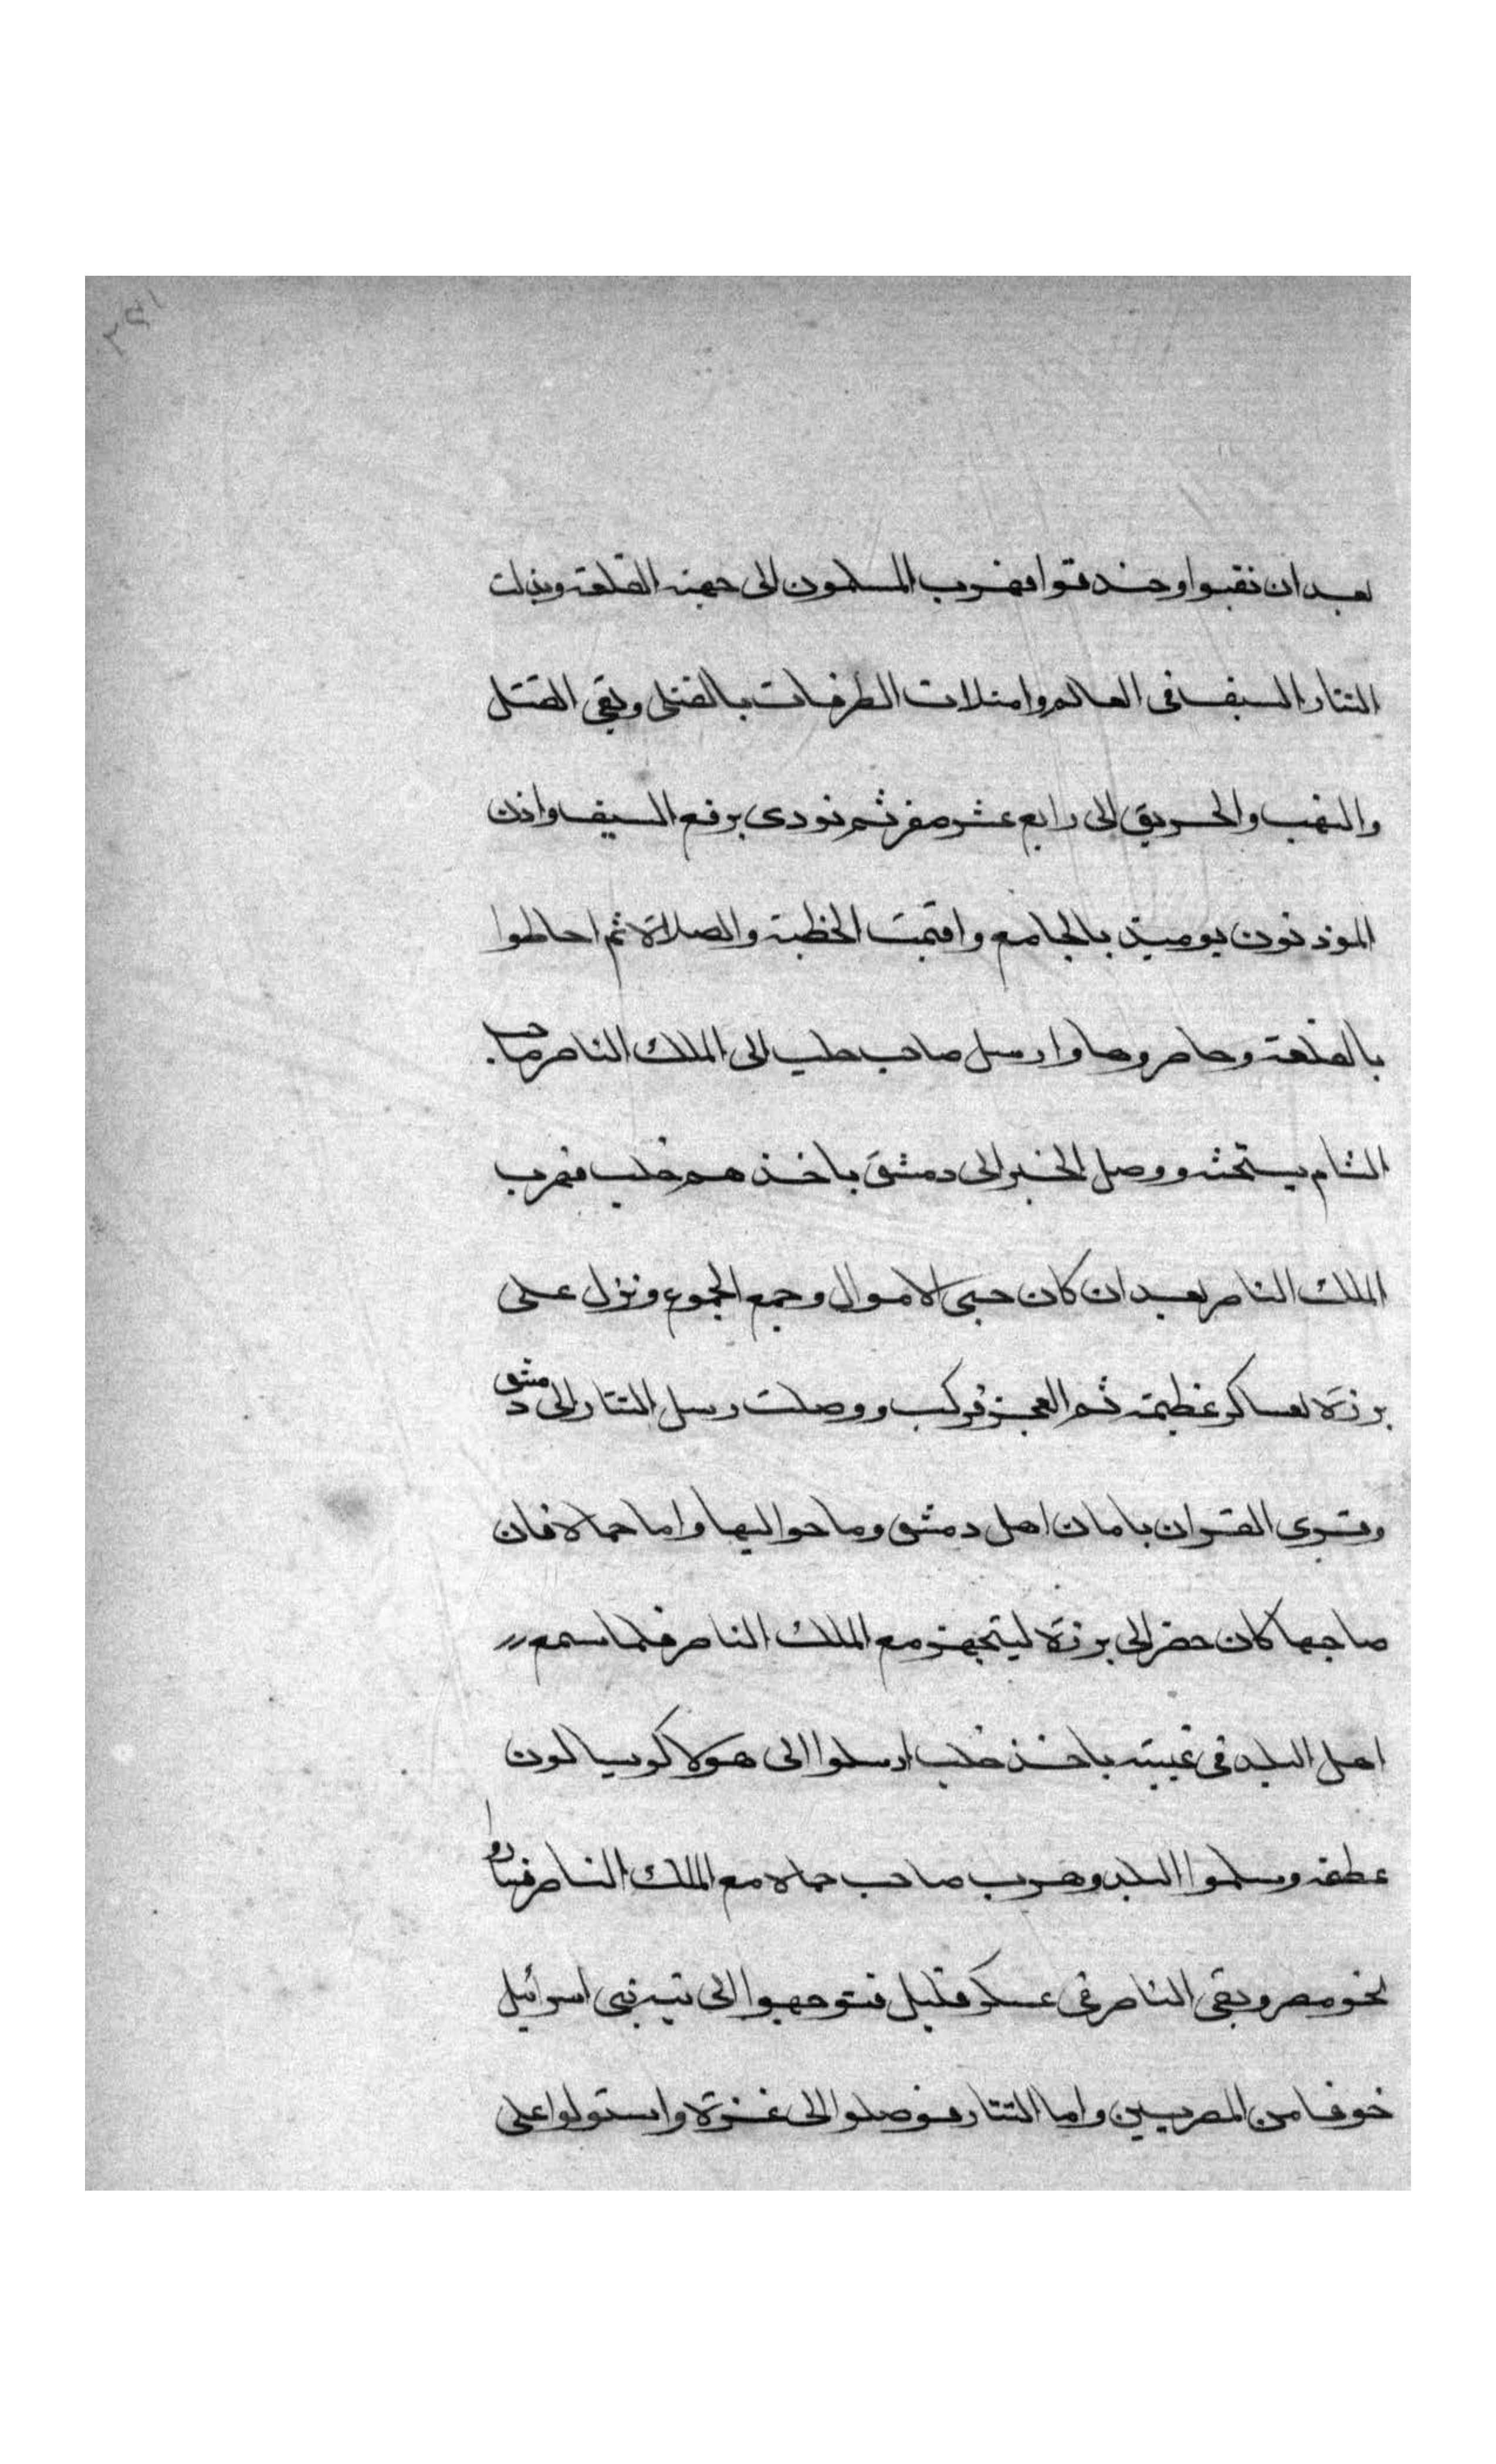 بعد ان نقبوا وخندقوا فهرب المسلمون الى جهة القلعة وبذلت
التتار السيف فى العالم وامتلات الطرقات بالقتلى وبقى القتل
والنهب والحريق الى رابع عشر صفر ثم نودى برفع السيف واذن
الموذنون يوميذ بالجامع واقيمت الخطبة والصلاة ثم احاطوا
بالقلعة وحاصروها وارسل صاحب حلب الى الملك الناصر صاحب
الشام يستحثه ووصل الخبر الى دمشق باخذهم حلب فهرب
الملك الناصر بعد ان كان جبى الاموال وجمع الجموع ونزل على
برزة بعساكر عظيمة ثم العجز فركب ووصلت رسل التتار الى دمشق
وقرى القران بامان اهل دمشق وما حواليها واما حماه فان
صاحبها كان حضر الى برزة ليتجهز مع الملك الناصر فلما سمع
اهل البلد فى غيبته باخذ حلب ارسلوا الى هولاكو يسالون
عطفه وسلموا البلد وهرب صاحب حماه مع الملك الناصر فساروا
نحو مصر وبقى الناصر فى عسكر قليل فتوجهوا الى تيه بنى اسرائيل
خوفا من المصريين واما التتار فوصلوا الى غزة واستولوا على